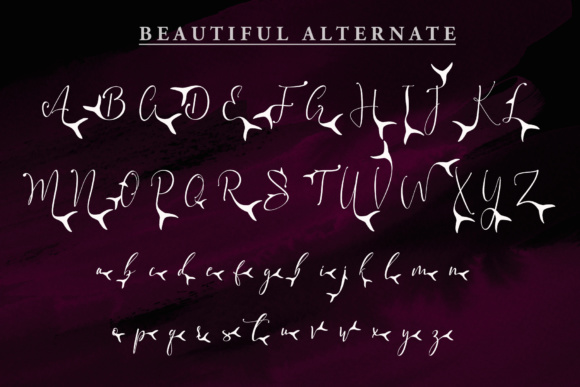 BEAUTIFUL ALTERNATE
A B C D E F G H I J K L
M N O P Q R S T U V W X Y Z
a b c d e f g h i j k l m n
o p q r s t u v w x y z